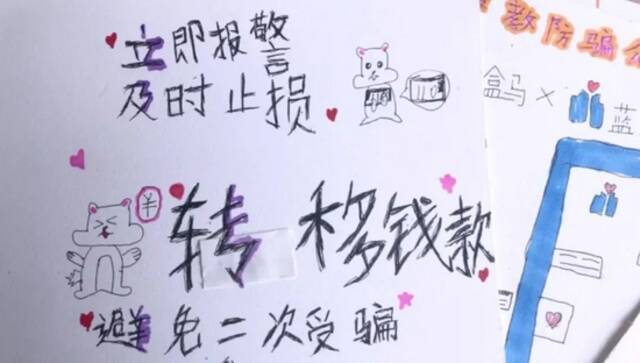 立即报警
及时止损
转移钱款
避免二次受骗
教防骗
盒马×
蓝